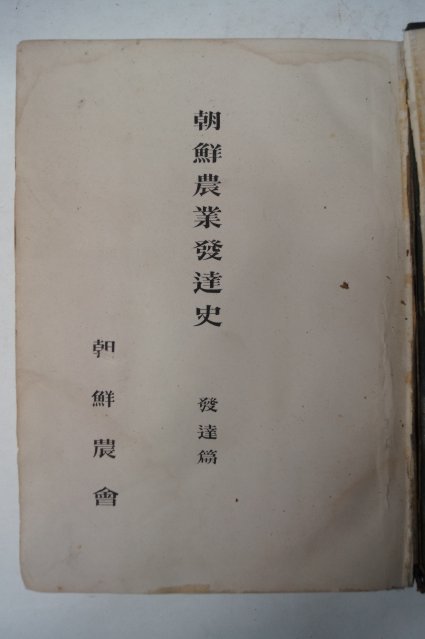 朝鮮農業發達史
發達篇
朝鮮農會